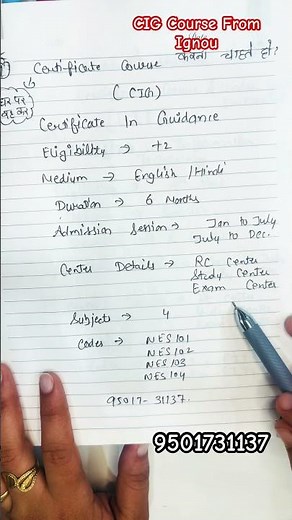 CIG Course From
Ignou
Certificate Course करना चाहते हो?
घर पर
रह कर
(CIG)
Certificate In Guidance
Eligibility → +2
Medium → English / Hindi
Duration → 6 Months
Admission Session → Jan to July
July to Dec.
Center Details → RC Center
Study Center
Exam Center
Subjects → 4
Codes → NES101
NES102
NES103
NES104
95017-31137.
9501731137